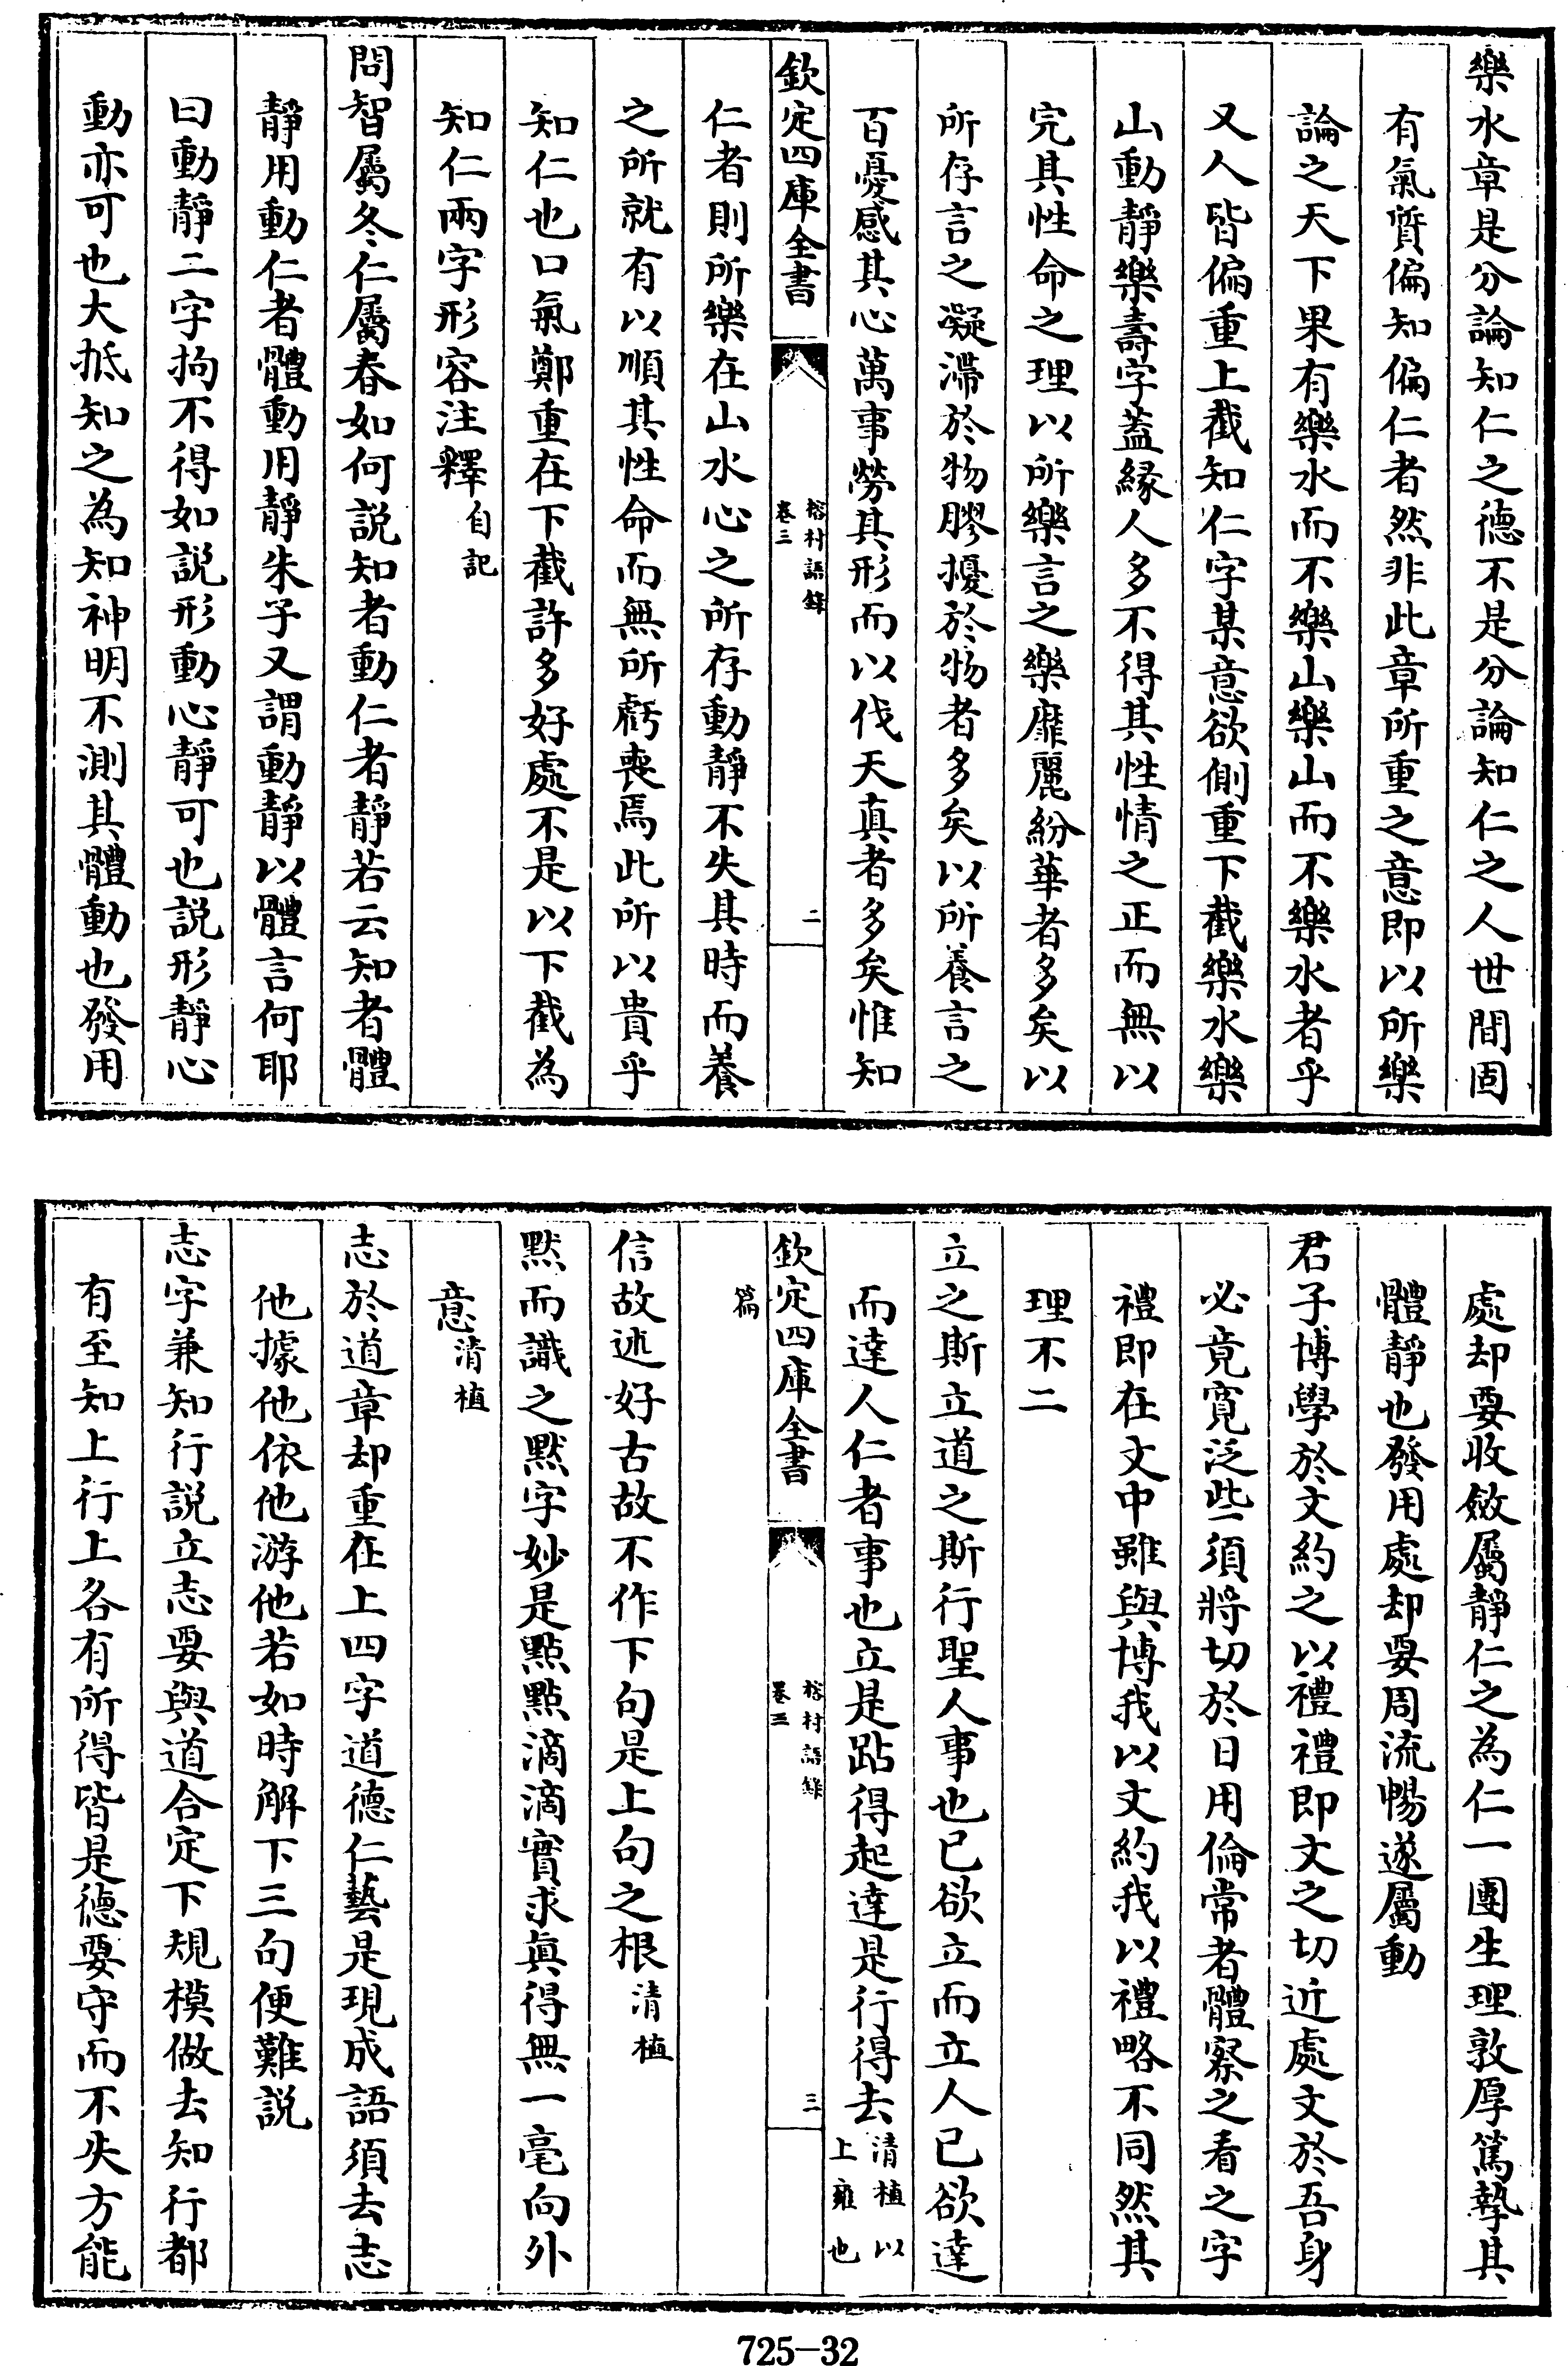 樂水章是分論知仁之德不是分論知仁之人世間固
有氣質偏知偏仁者然非此章所重之意即以所樂
論之天下果有樂水而不樂山樂山而不樂水者乎
又人皆偏重上截知仁字某意欲側重下截樂水樂
山動靜樂壽字蓋緣人多不得其性情之正而無以
完其性命之理以所樂言之樂靡麗紛華者多矣以
所存言之凝滯於物膠擾於物者多矣以所養言之
百憂感其心萬事勞其形而以伐天真者多矣惟知
欽定四庫全書
榕村語錄
卷三
二
仁者則所樂在山水心之所存動靜不失其時而養
之所就有以順其性命而無所虧喪焉此所以貴乎
知仁也口氣鄭重在下截許多好處不是以下截為
知仁兩字形容注釋自記
問智屬冬仁屬春如何説知者動仁者靜若云知者體
靜用動仁者體動用靜朱子又謂動靜以體言何耶
曰動靜二字拘不得如説形動心靜可也説形靜心
動亦可也大抵知之為知神明不測其體動也發用
處却要收斂屬靜仁之為仁一團生理敦厚篤摯其
體靜也發用處却要周流暢遂屬動
君子博學於文約之以禮禮即文之切近處文於吾身
必竟寬泛些須將切於日用倫常者體察之看之字
禮即在文中雖與博我以文約我以禮略不同然其
理不二
立之斯立道之斯行聖人事也已欲立而立人已欲達
而達人仁者事也立是跕得起達是行得去清植以
上雍也
欽定四庫全書
榕村語錄
卷三
三
篇
信故述好古故不作下句是上句之根清植
黙而識之黙字妙是點點滴滴實求眞得無一毫向外
意清植
志於道章却重在上四字道德仁藝是現成語須去志
他據他依他游他若如時解下三句便難説
志字兼知行説立志要與道合定下規模做去知行都
有至知上行上各有所得皆是德要守而不失方能
725-32